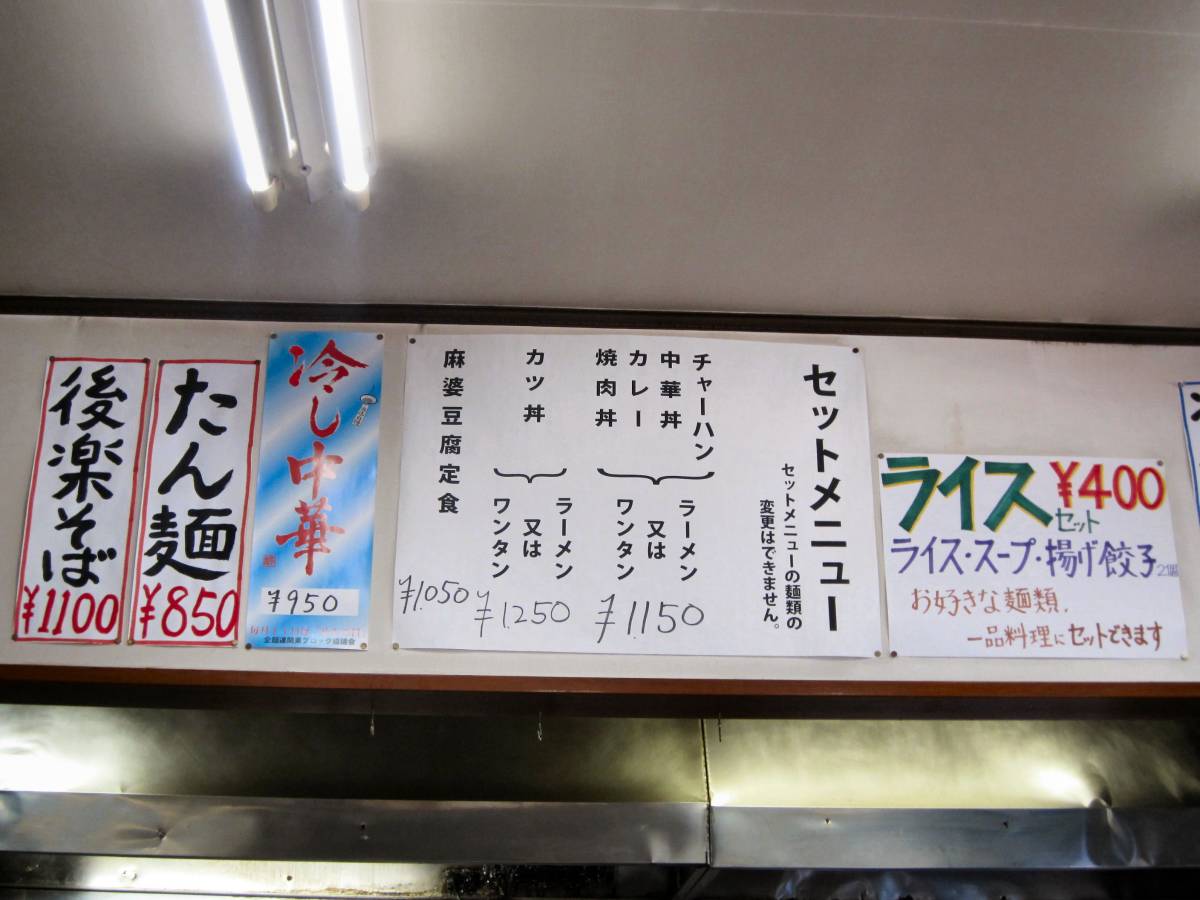 後楽そば
¥1100
たん麺
¥850
冷し中華
¥950
全麺連関東ブロック協議会
セットメニュー
セットメニューの麺類の
変更はできません。
チャーハン
中華丼
カレー
焼肉丼
ラーメン
又は
ワンタン
¥1.150
カツ丼
ラーメン
又は
ワンタン
¥1.250
麻婆豆腐定食
¥1.050
ライス ¥400
セット
ライス・スープ・揚げ餃子2個
お好きな麺類、
一品料理にセットできます